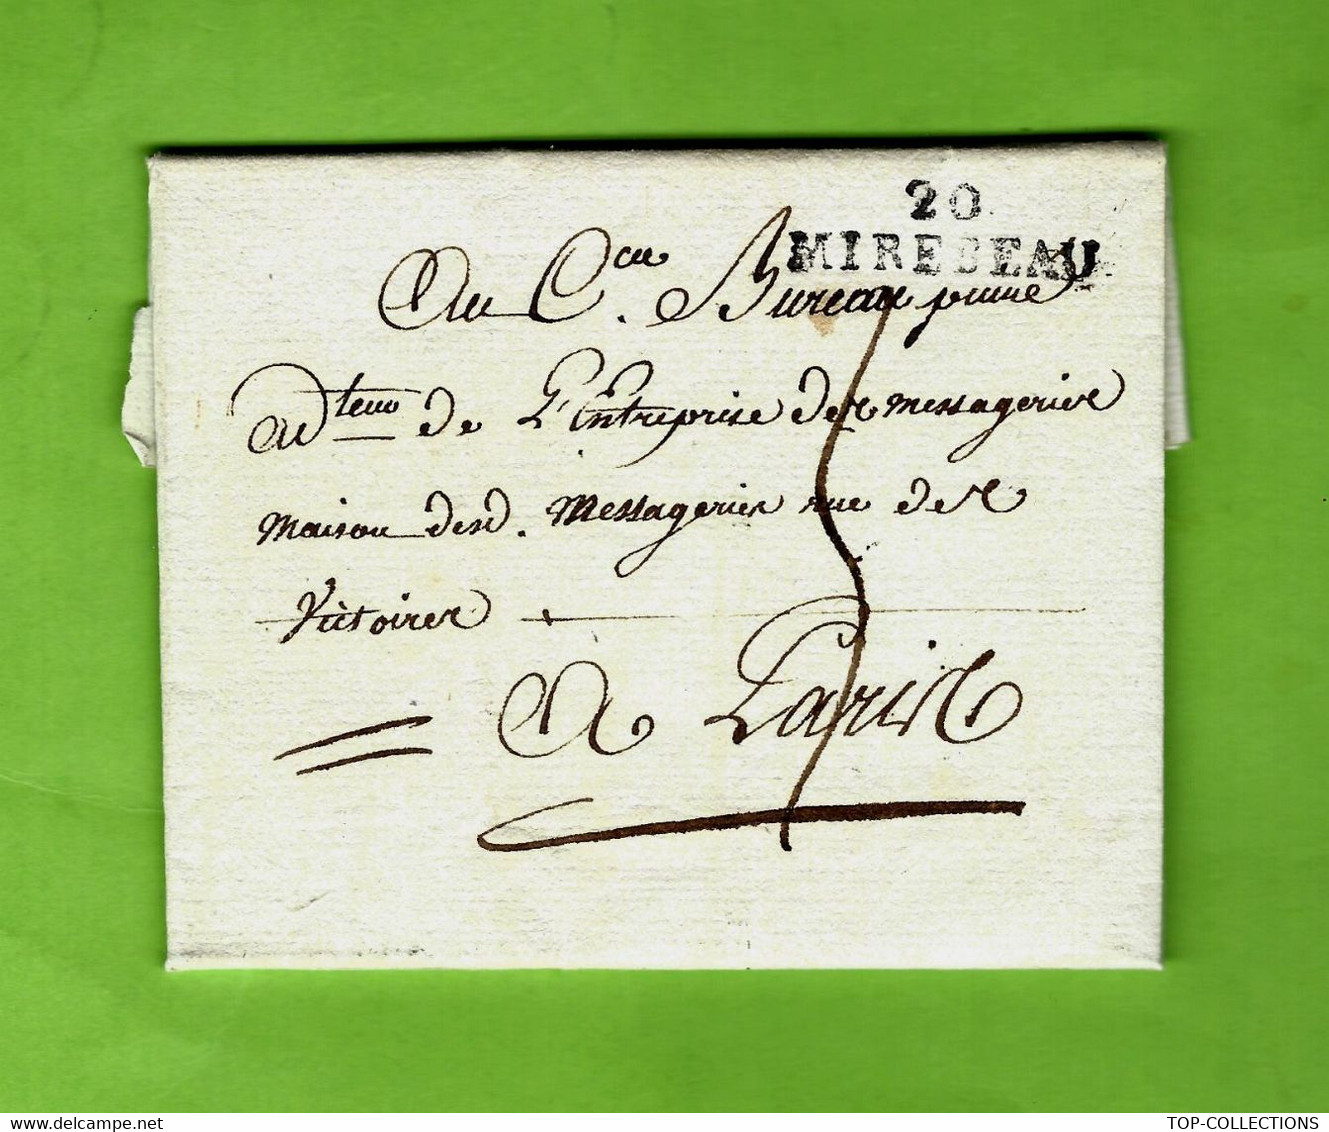 20
MIREBEAU
Au C.en Bureau prime
Ad.teur de L'Entreprise des messageries
maison desd. Messageries rue des
Victoires
A Paris
5
delcampe.net
TOP-COLLECTIONS